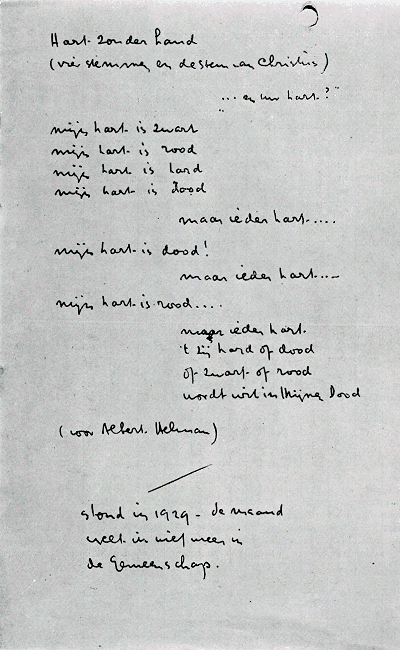 Hart zonder Land
(vier stemmen en de stem van Christus)
"... en uw hart?"
mijn hart is zwart
mijn hart is rood
mijn hart is hard
mijn hart is dood
maar ieder hart....
mijn hart is dood!
maar ieder hart....
mijn hart is rood....
maar ieder hart
't zij hard of dood
of zwart of rood
wordt wit in Mijnen Dood
(voor Albert Helman)
stond in 1929 - de maand
weet ik niet meer in
de Gemeenschap.